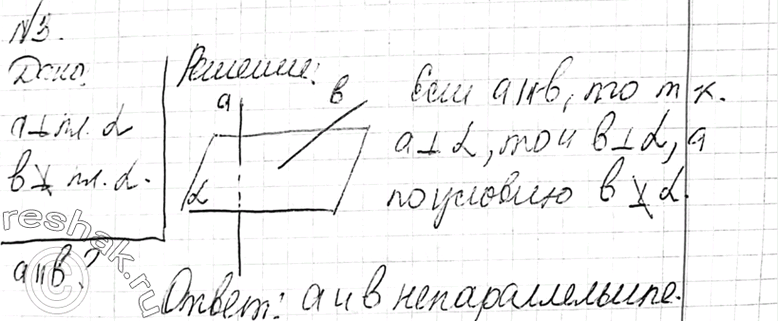 №3.
Дано:
a⊥пл. α
в⊥̸ пл. α.
a∥в?
Решение:
a
в
α
Если a∥в, то т.к.
a⊥α, то и в⊥α, а
по условию в⊥̸α.
Ответ: a и в непараллельные.
reshak.ru
©